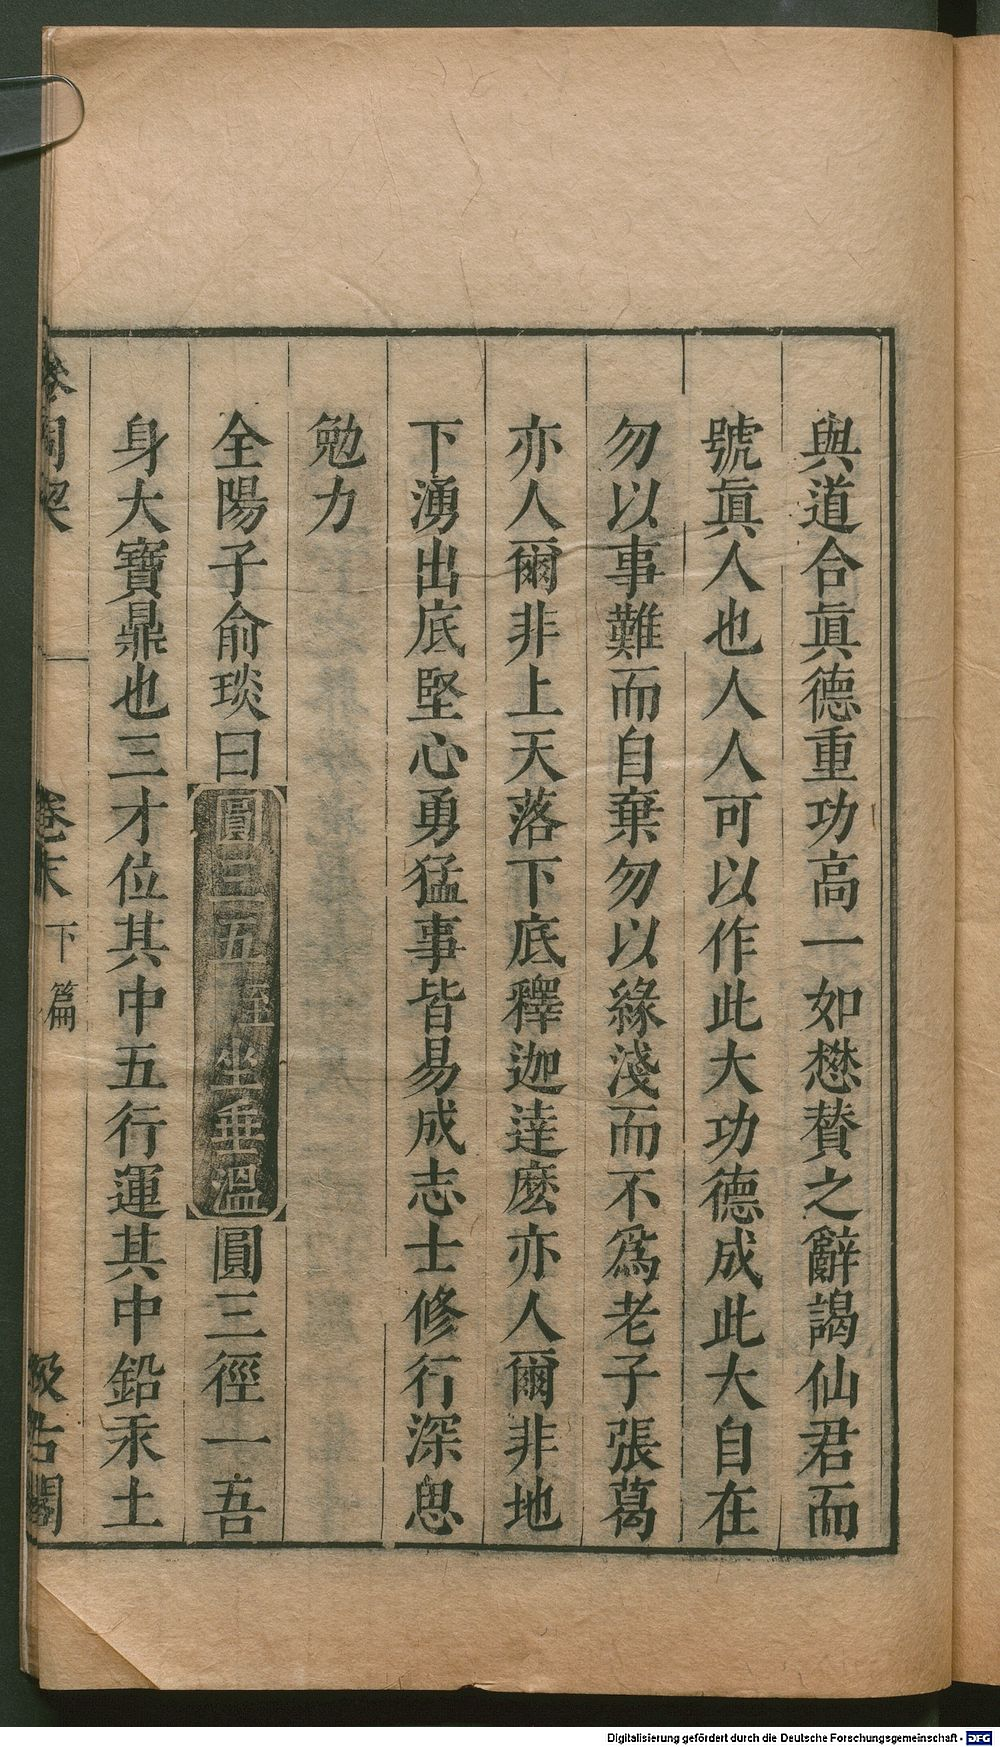 與道合眞德重功高一如懋賛之辭謁仙君而
號眞人也人人可以作此大功德成此大自在
勿以事難而自棄勿以緣淺而不爲老子張葛
亦人爾非上天落下底釋迦達麽亦人爾非地
下湧出底堅心勇猛事皆易成志士修行深思
勉力
全陽子俞琰曰圓三五 坐垂溫圓三徑一吾
身大寶鼎也三才位其中五行運其中鉛汞土
參同契 卷末 下篇 汲古閣
Digitalisierung gefördert durch die Deutsche Forschungsgemeinschaft - DFG